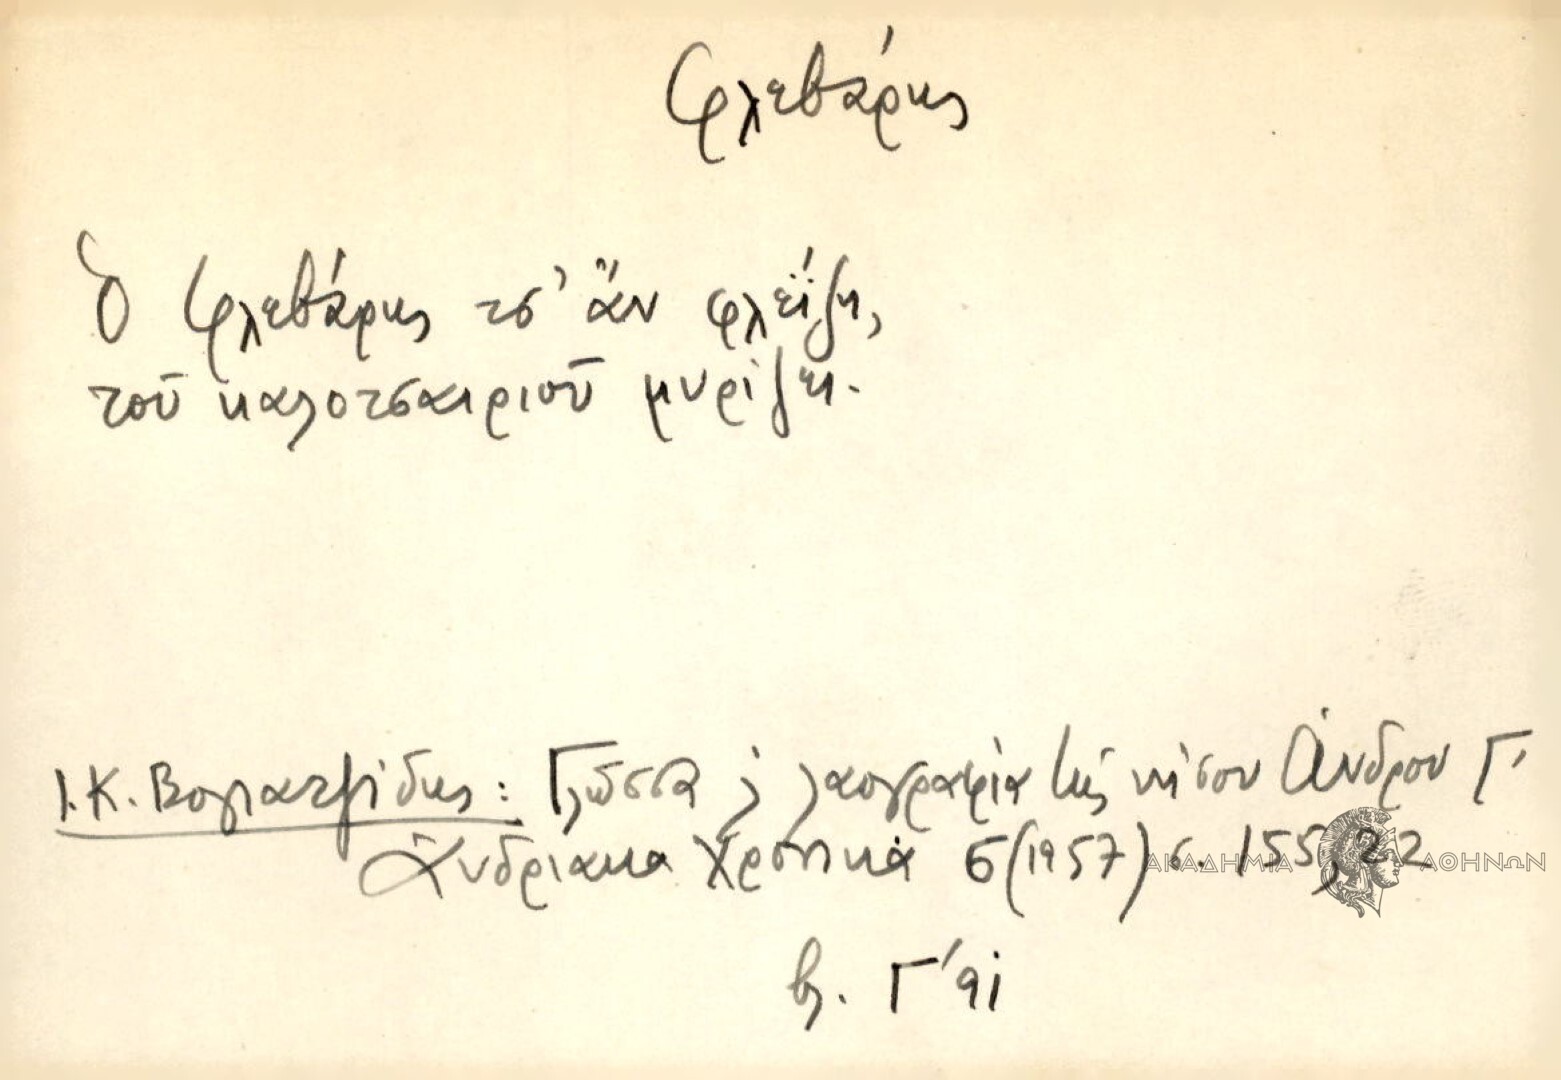 Φλεβάρης
Ὁ Φλεβάρης τσ' ἂν φλεΐζη,
τοῦ καλοτσαιριοῦ μυρίζει.
Ι. Κ. Βογιατζίδης: Γλῶσσα λαογραφία τῆς νήσου Ἄνδρου Γ'
Ἀνδριακὰ Χρονικὰ 6 (1957) σ. 155, 22
βλ. Γ' 91
ΑΚΑΔΗΜΙΑ ΑΘΗΝΩΝ